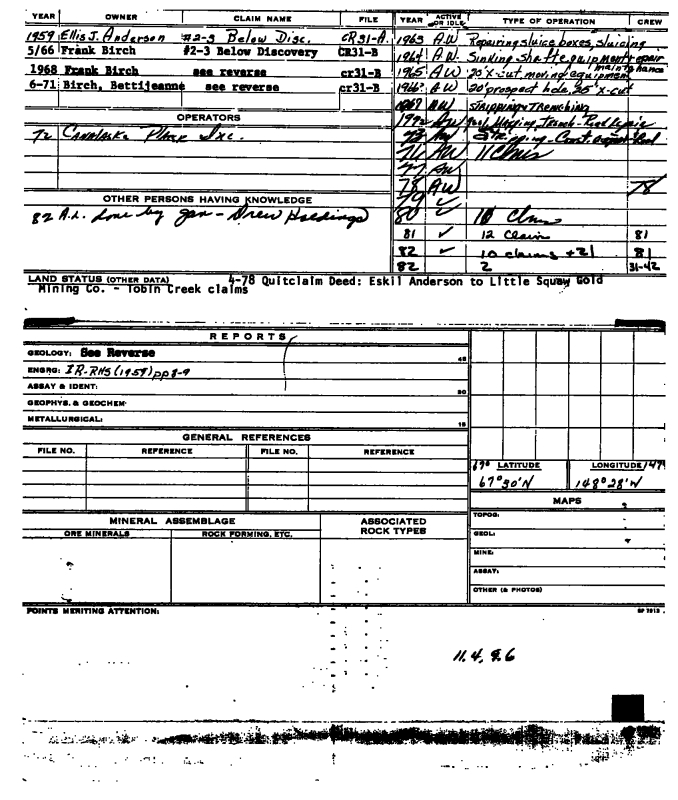 YEAR OWNER CLAIM NAME FILE
1959 Ellis J. Anderson #2-3 Below Disc. CR31-A
5/66 Frank Birch #2-3 Below Discovery CR31-B
1968 Frank Birch see reverse cr31-B
6-71 Birch, Bettijeanne see reverse cr31-B
OPERATORS
72 Canalaska Placer Inc.
OTHER PERSONS HAVING KNOWLEDGE
82 A.L. done by Jan - Drew Holdings
YEAR ACTIVE OR IDLE TYPE OF OPERATION CREW
1963 AW Repairing sluice boxes, sluicing
1964 AW Sinking shaft equipment repair
1965 AW 20' x-cut, moving equipment maintenance
1966? AW 20' prospect hole, 25' x-cut
1969 AW Stripping & Trenching
1972 AW Trench - Road Repair
73 AW Stripping - Const. Road
76 AW 11 Clms
77 AW
78 AW 78
79 ✓
80 ✓ 10 Clms
81 ✓ 12 Claim 81
82 ✓ 10 claims + 21 81
82 2 31-42
LAND STATUS (OTHER DATA) 4-78 Quitclaim Deed: Eskil Anderson to Little Squaw Gold
Mining Co. - Tobin Creek claims
REPORTS
GEOLOGY: See Reverse
45
ENGRG: IR-RHS (1959) pp 8-9
ASSAY & IDENT:
30
GEOPHYS. & GEOCHEM:
METALLURGICAL:
15
GENERAL REFERENCES
FILE NO. REFERENCE FILE NO. REFERENCE
67° LATITUDE LONGITUDE 147°
67°30'N 148°28'W
MAPS
TOPOG:
GEOL:
MINE:
ASSAY:
OTHER (& PHOTOS)
MINERAL ASSEMBLAGE
ORE MINERALS ROCK FORMING, ETC.
ASSOCIATED ROCK TYPES
POINTS MERITING ATTENTION:
SP 7913
11.4, 9.6